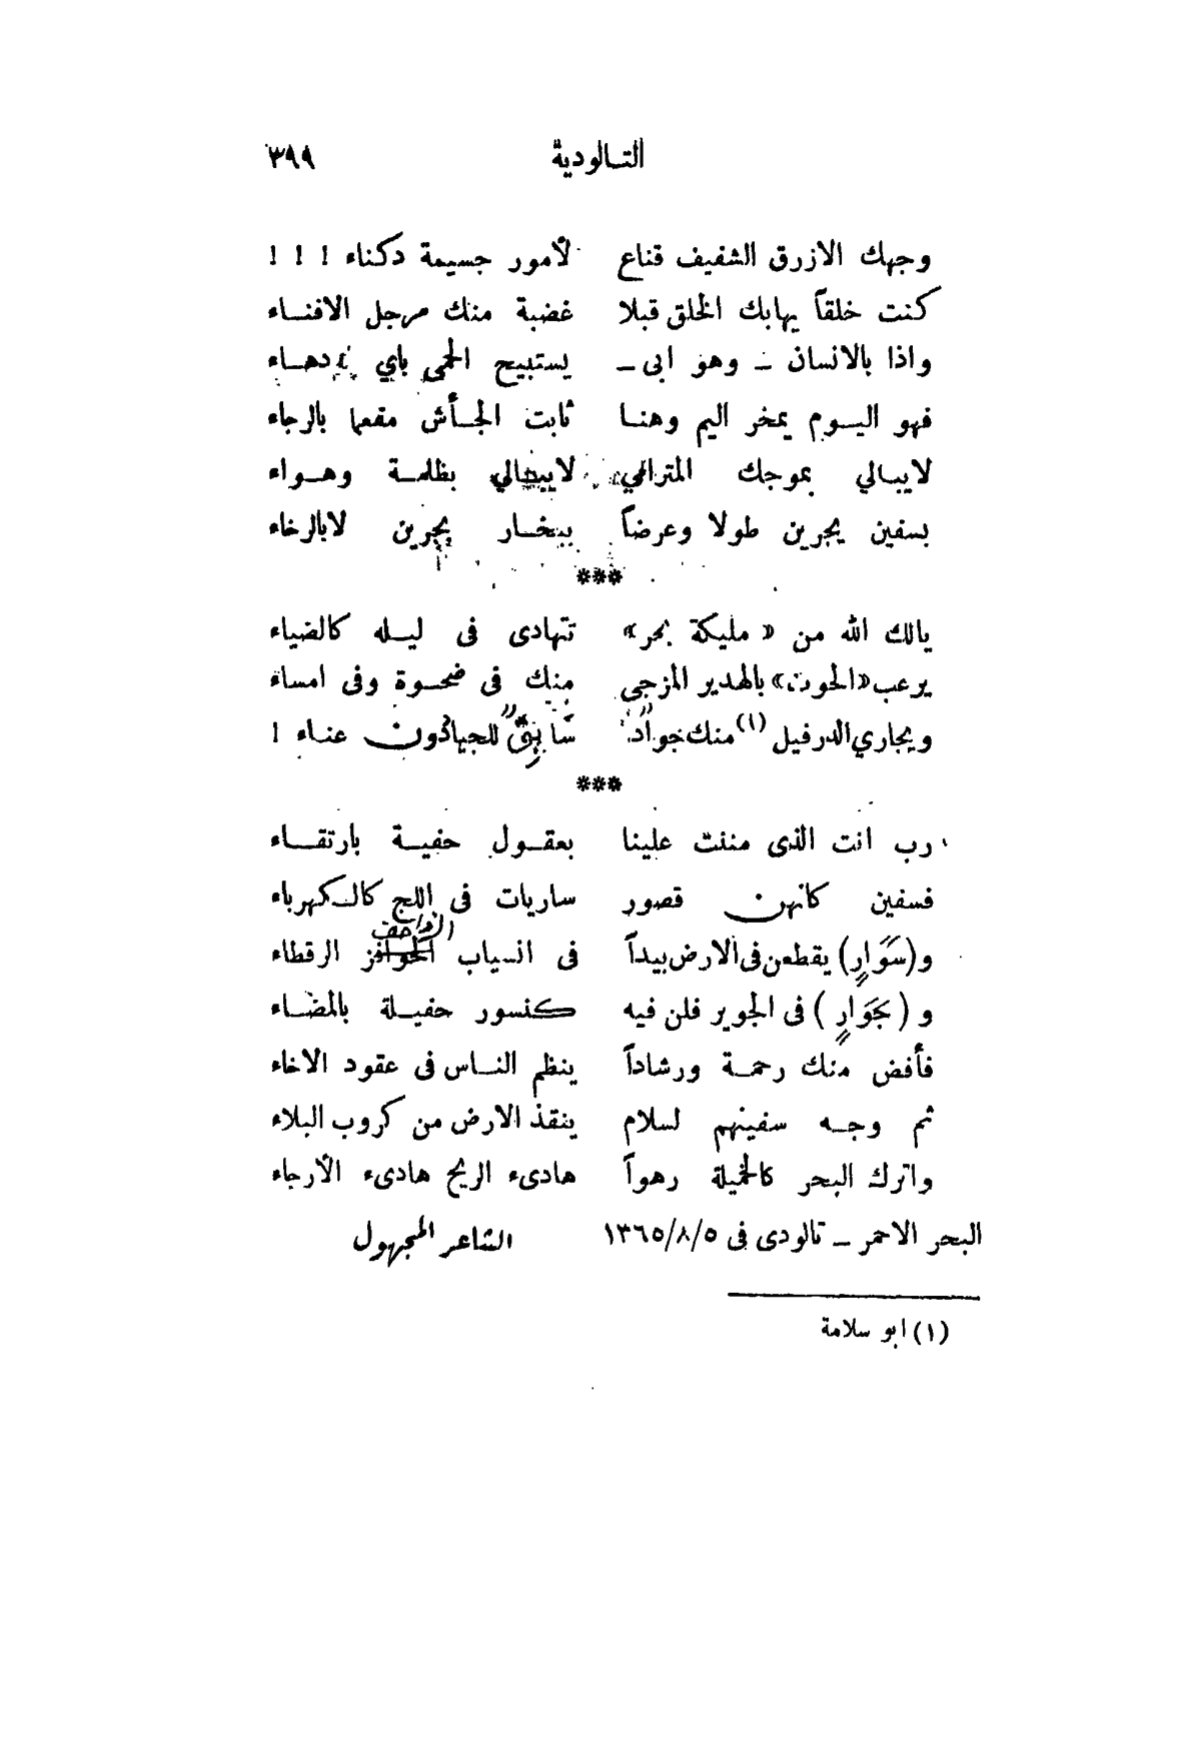 التالودية ٣٩٩
وجهك الازرق الشفيف قناع لأمور جسيمة دكناء ! ! !
كنت خلقاً يهابك الخلق قبلا غضبة منك مرجل الافناء
واذا بالانسان – وهو ابى – يستبيح الحمى باي دهاء
فهو اليوم يمخر اليم وهنا ثابت الجأش مفعما بالرجاء
لايبالي بموجك المترامي لايبالي بظلمة وهواء
بسفين يجرين طولا وعرضاً ببخار يجرين لابالرخاء
***
يالك الله من « مليكة بحر» تتهادى فى ليله كالضياء
يرعب «الحوت» بالهدير المزجى منك فى ضحوة وفى امساء
ويجاري الدرفيل (١) منك جوادٌ سَابِقٌ للجياد دون عناء !
***
رب انت الذى مننت علينا بعقول حفية بارتقاء
فسفين كانهن قصور ساريات فى اللج كالكهرباء
الزواحف
و(سَوَارٍ) يقطعن فى الارض بيداً فى انسياب الحوافز الرقطاء
و (بجَوَارٍ) فى الجوير فلن فيه كنسور حفيلة بالمضاء
فأفض منك رحمة ورشاداً ينظم الناس فى عقود الاخاء
ثم وجه سفينهم لسلام ينقذ الارض من كروب البلاء
واترك البحر كالخميلة رهواً هادىء الريح هادىء الأرجاء
البحر الاحمر – تالودى فى ١٣٦٥/٨/٥ الشاعر المجهول
(١) ابو سلامة